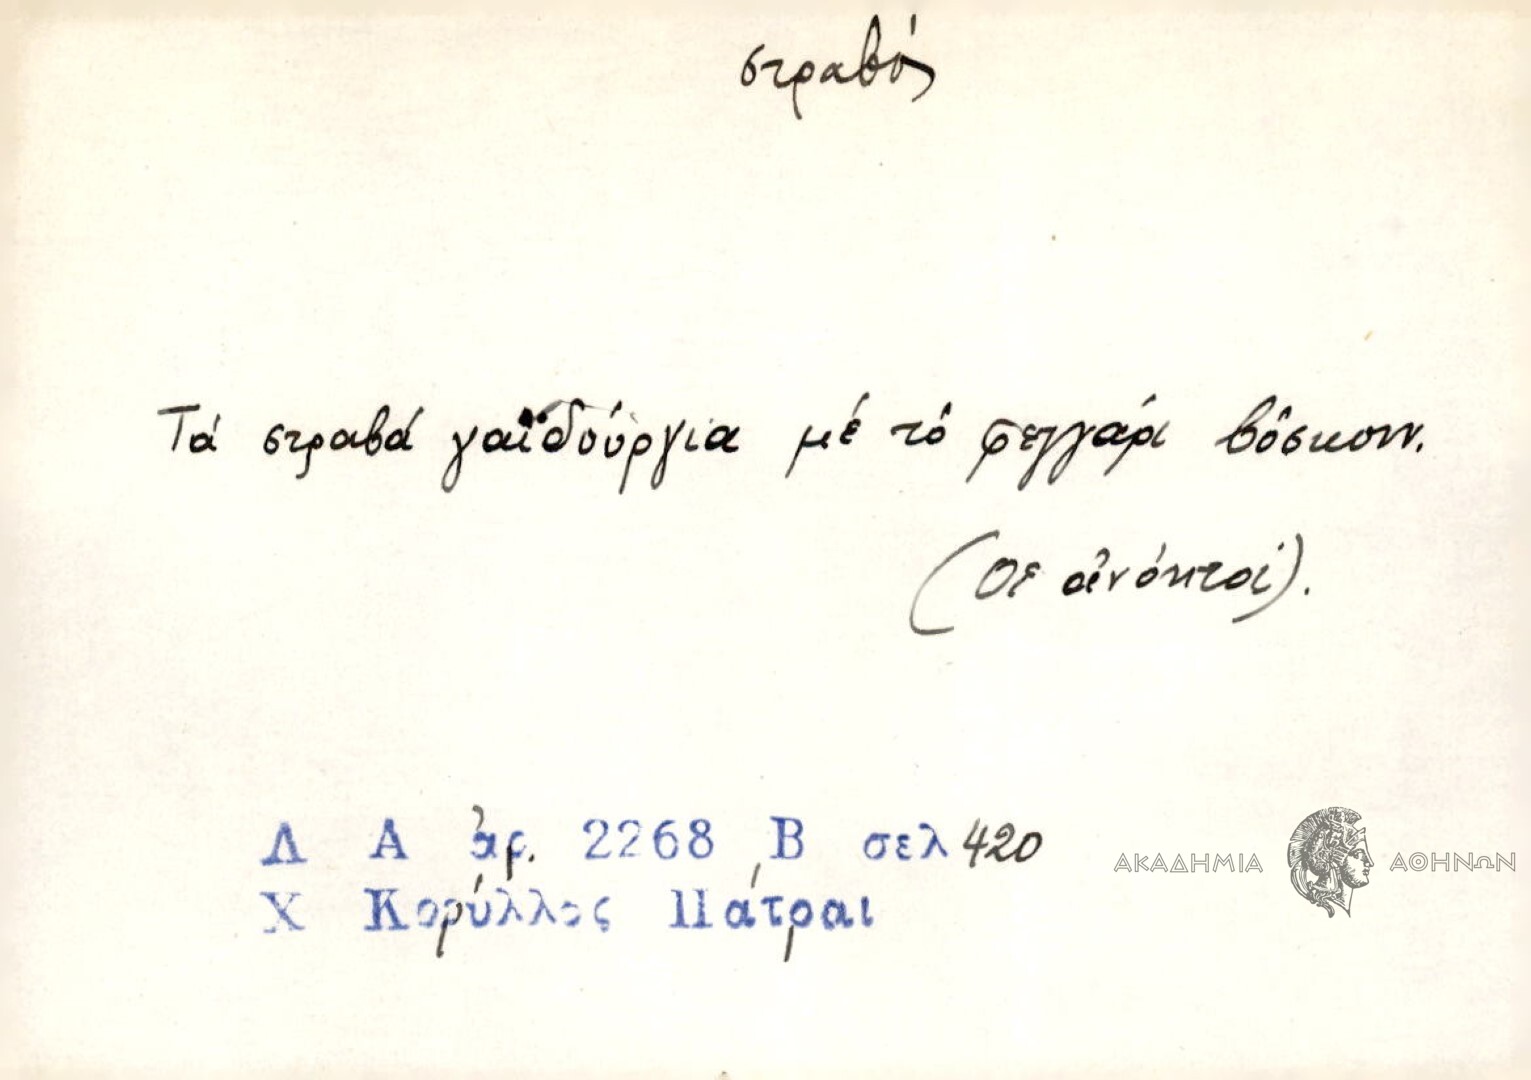 στραβός
Τά στραβά γαϊδούργια μέ τό φεγγάρι βόσκουν.
(Οἱ ἀνόητοί).
Λ Α ἀρ. 2268 Β σελ 420
Χ Κορύλλος Πάτραι
ΑΚΑΔΗΜΙΑ ΑΘΗΝΩΝ